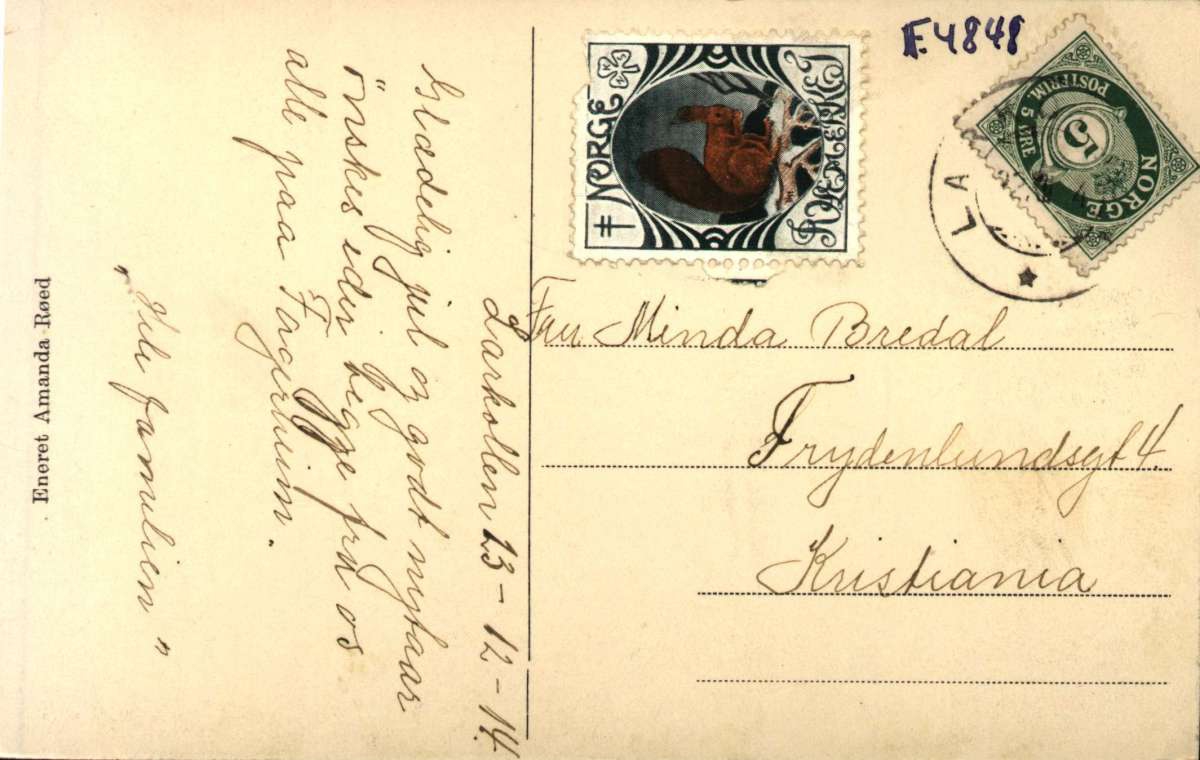 Larkollen 23-12-14.
Glædelig jul og godt nytaar
önskes eder begge fra os
alle paa Fagerheim.
"Hele familien"
Eneret Amanda Røed
F.4848
NORGE
NORGE
POSTFRIM. 5 ØRE
5
LA
Fru Minda Bredal
Frydenlundsgt 4.
Kristiania